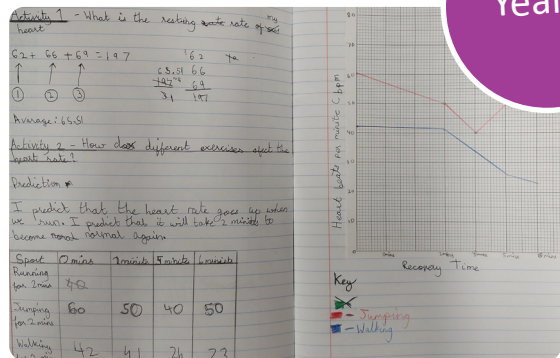 Activity 1 - What is the resting rate of my
heart
62 + 66 + 69 = 197
62
65.51 66
69
197
① ② ③
Average: 65.51
Activity 2 - How does different exercises afect the
heart rate?
Prediction
I predict that the heart rate goes up when
we run. I predict that it will take 2 minits to
become normal again.
Sport 0 mins 2 minits 5 minits 6 minits
Running
for 2 mins
Jumping 60 50 40 50
for 2 mins
Walking 42 41
Year
Heart beats per minute (bpm
Recovery Time
Key
- Jumping
- Walking